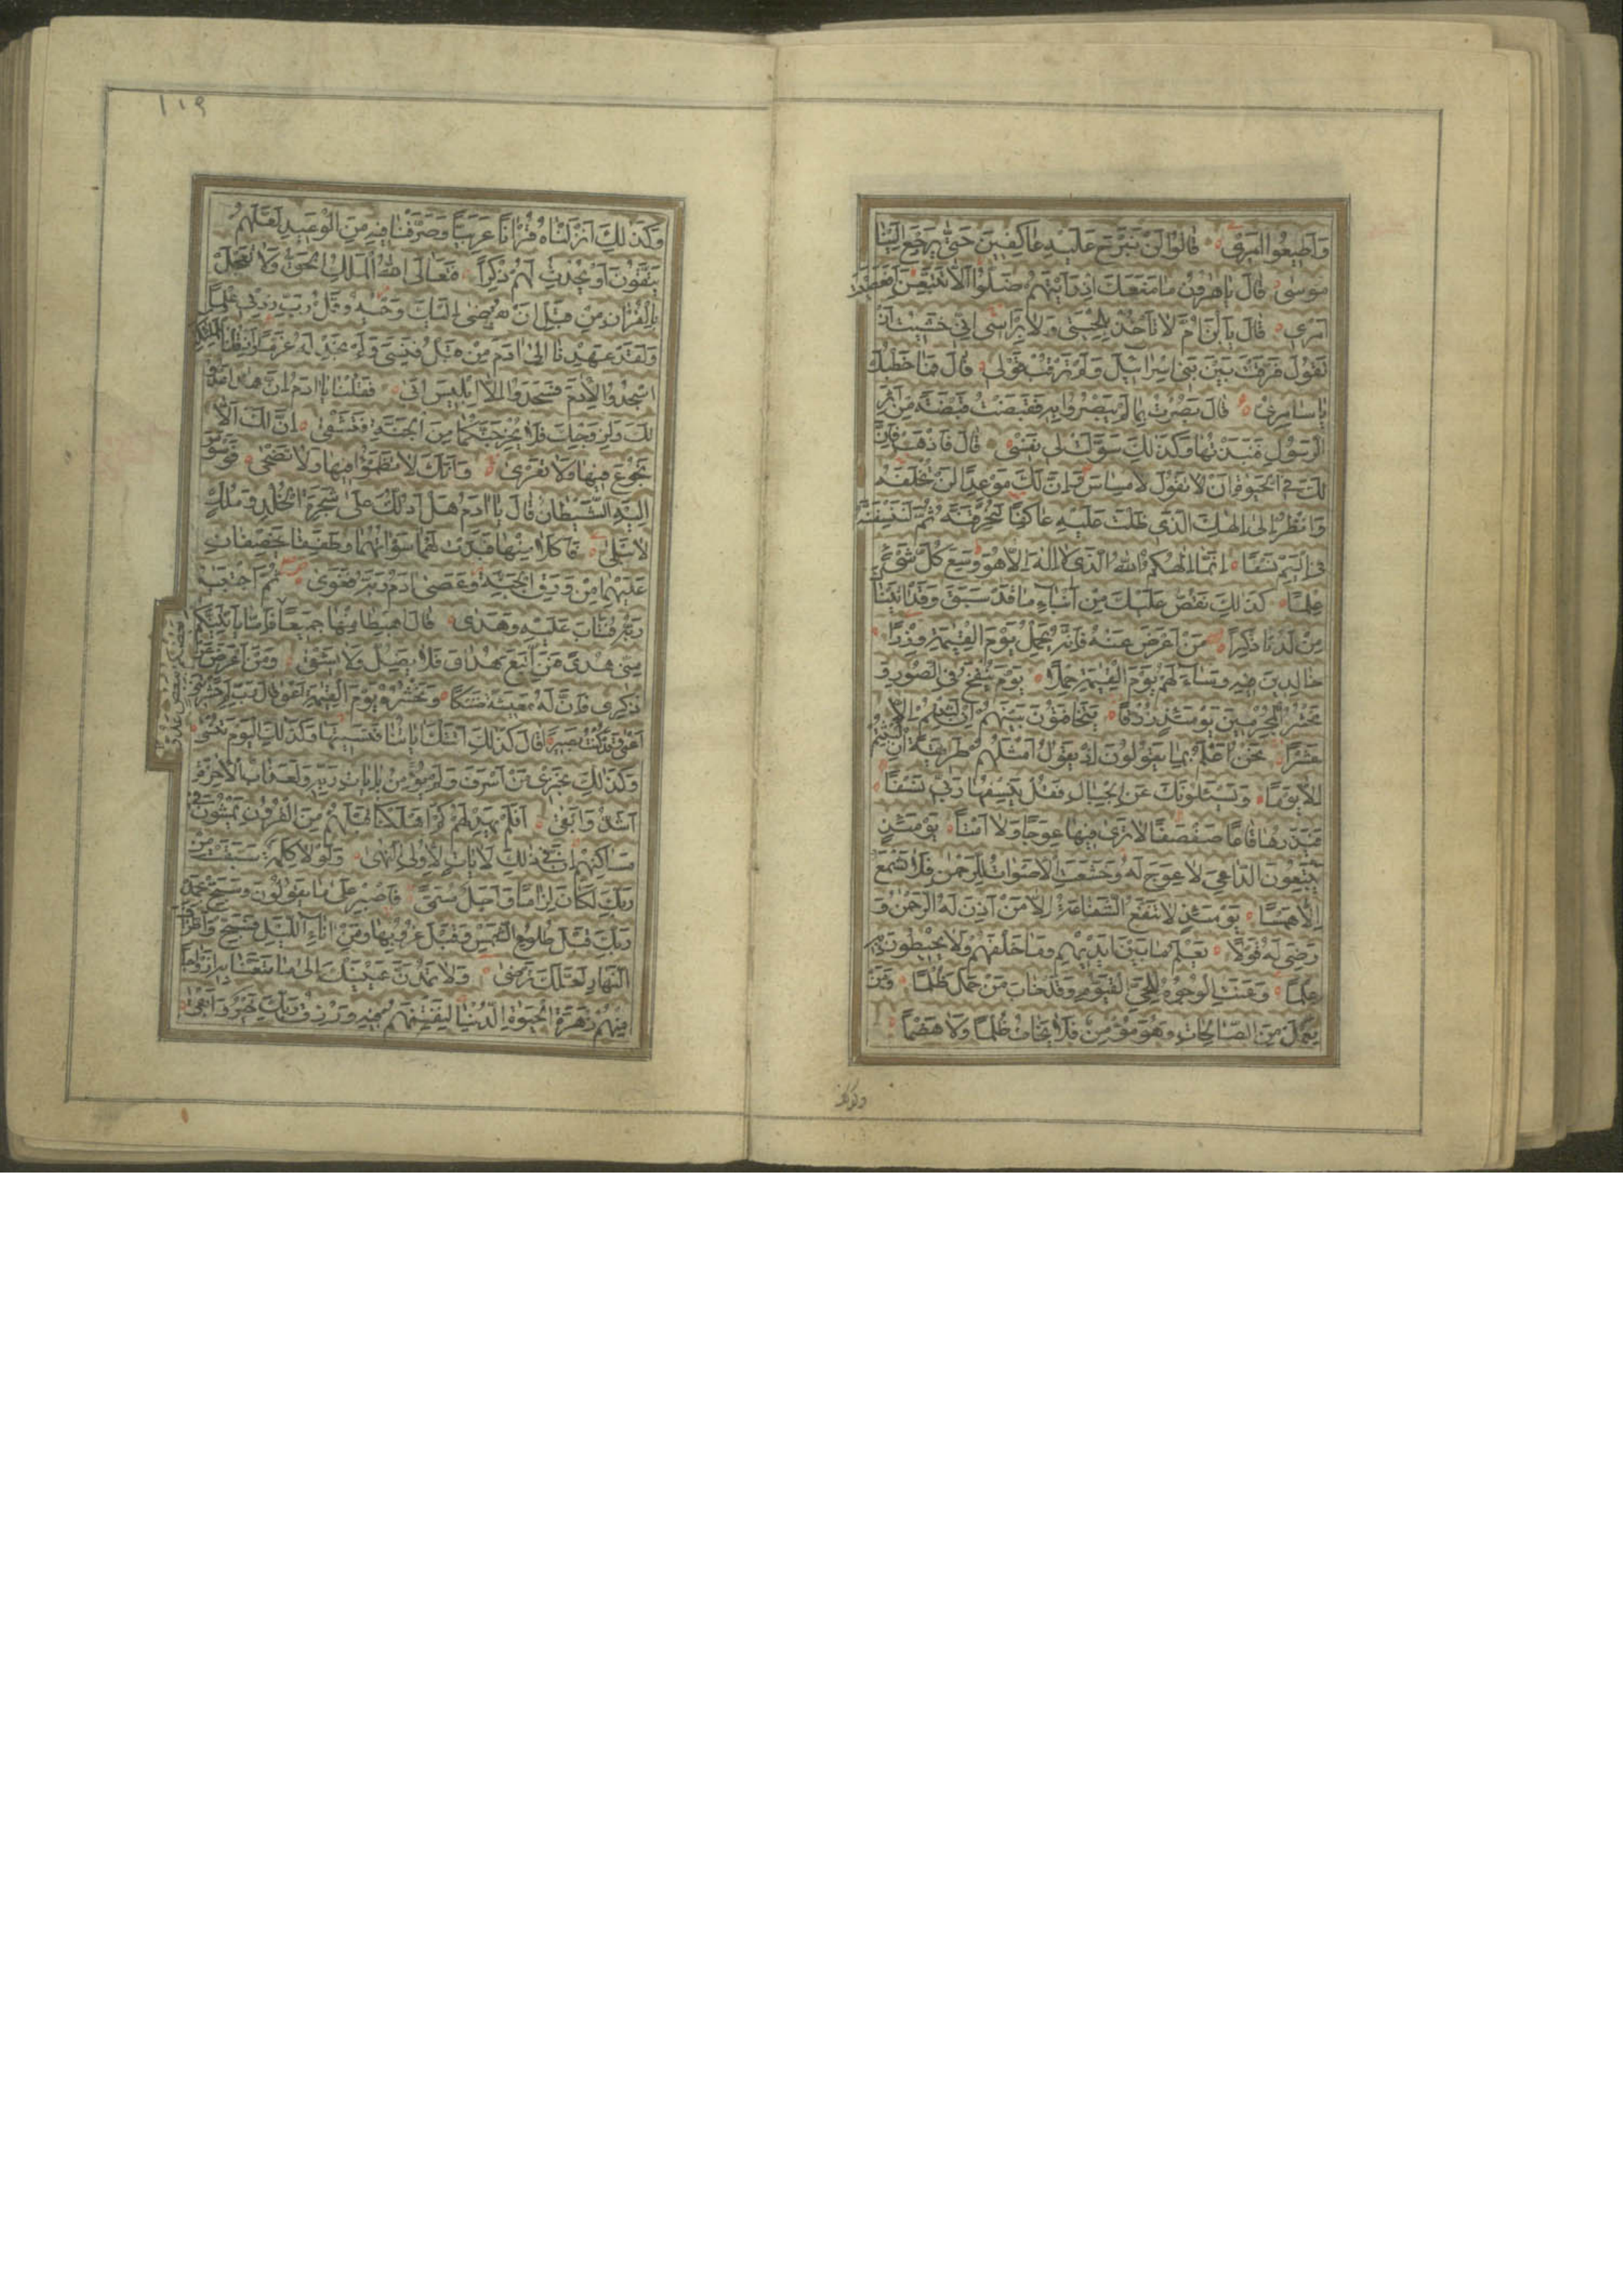 وَاَطِيعُوا اَمْرِي قٰالُوا لَنْ نَبْرَحَ عَلَيْهِ عٰاكِفِينَ حَتّٰى يَرْجِعَ اِلَيْنٰا
مُوسٰى قٰالَ يٰا هٰرُونُ مٰا مَنَعَكَ اِذْ رَاَيْتَهُمْ ضَلُّوا اَلّٰا تَتَّبِعَنِ اَفَعَصَيْتَ
اَمْرِي قٰالَ يَا بْنَ اُمَّ لٰا تَأْخُذْ بِلِحْيَتِي وَلٰا بِرَأْسِي اِنِّي خَشِيتُ اَنْ
تَقُولَ فَرَّقْتَ بَيْنَ بَنِي اِسْرٰائِيلَ وَلَمْ تَرْقُبْ قَوْلِي قٰالَ فَمٰا خَطْبُكَ
يٰا سٰامِرِيُّ قٰالَ بَصُرْتُ بِمٰا لَمْ يَبْصُرُوا بِهِ فَقَبَضْتُ قَبْضَةً مِنْ اَثَرِ
الرَّسُولِ فَنَبَذْتُهٰا وَكَذٰلِكَ سَوَّلَتْ لِي نَفْسِي قٰالَ فَاذْهَبْ فَاِنَّ
لَكَ فِي الْحَيٰوةِ اَنْ تَقُولَ لٰا مِسٰاسَ وَاِنَّ لَكَ مَوْعِدًا لَنْ تُخْلَفَهُ
وَانْظُرْ اِلٰى اِلٰهِكَ الَّذِي ظَلْتَ عَلَيْهِ عٰاكِفًا لَنُحَرِّقَنَّهُ ثُمَّ لَنَنْسِفَنَّهُ
فِي الْيَمِّ نَسْفًا اِنَّمٰا اِلٰهُكُمُ اللّٰهُ الَّذِي لٰا اِلٰهَ اِلّٰا هُوَ وَسِعَ كُلَّ شَيْءٍ
عِلْمًا كَذٰلِكَ نَقُصُّ عَلَيْكَ مِنْ اَنْبٰاءِ مٰا قَدْ سَبَقَ وَقَدْ اٰتَيْنٰاكَ
مِنْ لَدُنّٰا ذِكْرًا مَنْ اَعْرَضَ عَنْهُ فَاِنَّهُ يَحْمِلُ يَوْمَ الْقِيٰمَةِ وِزْرًا
خٰالِدِينَ فِيهِ وَسٰاءَ لَهُمْ يَوْمَ الْقِيٰمَةِ حِمْلًا يَوْمَ يُنْفَخُ فِي الصُّورِ وَ
نَحْشُرُ الْمُجْرِمِينَ يَوْمَئِذٍ زُرْقًا يَتَخٰافَتُونَ بَيْنَهُمْ اِنْ لَبِثْتُمْ اِلّٰا
عَشْرًا نَحْنُ اَعْلَمُ بِمٰا يَقُولُونَ اِذْ يَقُولُ اَمْثَلُهُمْ طَرِيقَةً اِنْ لَبِثْتُمْ
اِلّٰا يَوْمًا وَيَسْئَلُونَكَ عَنِ الْجِبٰالِ فَقُلْ يَنْسِفُهٰا رَبِّي نَسْفًا
فَيَذَرُهٰا قٰاعًا صَفْصَفًا لٰا تَرٰى فِيهٰا عِوَجًا وَلٰا اَمْتًا يَوْمَئِذٍ
يَتَّبِعُونَ الدّٰاعِيَ لٰا عِوَجَ لَهُ وَخَشَعَتِ الْاَصْوٰاتُ لِلرَّحْمٰنِ فَلٰا تَسْمَعُ
اِلّٰا هَمْسًا يَوْمَئِذٍ لٰا تَنْفَعُ الشَّفٰاعَةُ اِلّٰا مَنْ اَذِنَ لَهُ الرَّحْمٰنُ وَ
رَضِيَ لَهُ قَوْلًا يَعْلَمُ مٰا بَيْنَ اَيْدِيهِمْ وَمٰا خَلْفَهُمْ وَلٰا يُحِيطُونَ بِهِ
عِلْمًا وَعَنَتِ الْوُجُوهُ لِلْحَيِّ الْقَيُّومِ وَقَدْ خٰابَ مَنْ حَمَلَ ظُلْمًا وَمَنْ
يَعْمَلْ مِنَ الصّٰالِحٰاتِ وَهُوَ مُؤْمِنٌ فَلٰا يَخٰافُ ظُلْمًا وَلٰا هَضْمًا
وكذلك
١١٩
وَكَذٰلِكَ اَنْزَلْنٰاهُ قُرْاٰنًا عَرَبِيًّا وَصَرَّفْنٰا فِيهِ مِنَ الْوَعِيدِ لَعَلَّهُمْ
يَتَّقُونَ اَوْ يُحْدِثُ لَهُمْ ذِكْرًا فَتَعٰالَى اللّٰهُ الْمَلِكُ الْحَقُّ وَلٰا تَعْجَلْ
بِالْقُرْاٰنِ مِنْ قَبْلِ اَنْ يُقْضٰى اِلَيْكَ وَحْيُهُ وَقُلْ رَبِّ زِدْنِي عِلْمًا
وَلَقَدْ عَهِدْنٰا اِلٰى اٰدَمَ مِنْ قَبْلُ فَنَسِيَ وَلَمْ نَجِدْ لَهُ عَزْمًا وَاِذْ قُلْنٰا لِلْمَلٰئِكَةِ
اسْجُدُوا لِاٰدَمَ فَسَجَدُوا اِلّٰا اِبْلِيسَ اَبٰى فَقُلْنٰا يٰا اٰدَمُ اِنَّ هٰذٰا عَدُوٌّ
لَكَ وَلِزَوْجِكَ فَلٰا يُخْرِجَنَّكُمٰا مِنَ الْجَنَّةِ فَتَشْقٰى اِنَّ لَكَ اَلّٰا
تَجُوعَ فِيهٰا وَلٰا تَعْرٰى وَاَنَّكَ لٰا تَظْمَؤُا فِيهٰا وَلٰا تَضْحٰى فَوَسْوَسَ
اِلَيْهِ الشَّيْطٰانُ قٰالَ يٰا اٰدَمُ هَلْ اَدُلُّكَ عَلٰى شَجَرَةِ الْخُلْدِ وَمُلْكٍ
لٰا يَبْلٰى فَاَكَلٰا مِنْهٰا فَبَدَتْ لَهُمٰا سَوْاٰتُهُمٰا وَطَفِقٰا يَخْصِفٰانِ
عَلَيْهِمٰا مِنْ وَرَقِ الْجَنَّةِ وَعَصٰى اٰدَمُ رَبَّهُ فَغَوٰى ثُمَّ اجْتَبٰيهُ
رَبُّهُ فَتٰابَ عَلَيْهِ وَهَدٰى قٰالَ اهْبِطٰا مِنْهٰا جَمِيعًا فَاِمّٰا يَأْتِيَنَّكُمْ
بعضكم لبعض عدو
مِنِّي هُدًى فَمَنِ اتَّبَعَ هُدٰايَ فَلٰا يَضِلُّ وَلٰا يَشْقٰى وَمَنْ اَعْرَضَ عَنْ
ذِكْرِي فَاِنَّ لَهُ مَعِيشَةً ضَنْكًا وَنَحْشُرُهُ يَوْمَ الْقِيٰمَةِ اَعْمٰى قٰالَ رَبِّ لِمَ حَشَرْتَنِي
اَعْمٰى وَقَدْ كُنْتُ بَصِيرًا قٰالَ كَذٰلِكَ اَتَتْكَ اٰيٰاتُنٰا فَنَسِيتَهٰا وَكَذٰلِكَ الْيَوْمَ تُنْسٰى
وَكَذٰلِكَ نَجْزِي مَنْ اَسْرَفَ وَلَمْ يُؤْمِنْ بِاٰيٰاتِ رَبِّهِ وَلَعَذٰابُ الْاٰخِرَةِ
اَشَدُّ وَاَبْقٰى اَفَلَمْ يَهْدِ لَهُمْ كَمْ اَهْلَكْنٰا قَبْلَهُمْ مِنَ الْقُرُونِ يَمْشُونَ فِي
مَسٰاكِنِهِمْ اِنَّ فِي ذٰلِكَ لَاٰيٰاتٍ لِاُولِي النُّهٰى وَلَوْلٰا كَلِمَةٌ سَبَقَتْ مِنْ
رَبِّكَ لَكٰانَ لِزٰامًا وَاَجَلٌ مُسَمًّى فَاصْبِرْ عَلٰى مٰا يَقُولُونَ وَسَبِّحْ بِحَمْدِ
رَبِّكَ قَبْلَ طُلُوعِ الشَّمْسِ وَقَبْلَ غُرُوبِهٰا وَمِنْ اٰنٰاءِ اللَّيْلِ فَسَبِّحْ وَاَطْرٰافَ
النَّهٰارِ لَعَلَّكَ تَرْضٰى وَلٰا تَمُدَّنَّ عَيْنَيْكَ اِلٰى مٰا مَتَّعْنٰا بِهِ اَزْوٰاجًا
مِنْهُمْ زَهْرَةَ الْحَيٰوةِ الدُّنْيٰا لِنَفْتِنَهُمْ فِيهِ وَرِزْقُ رَبِّكَ خَيْرٌ وَاَبْقٰى